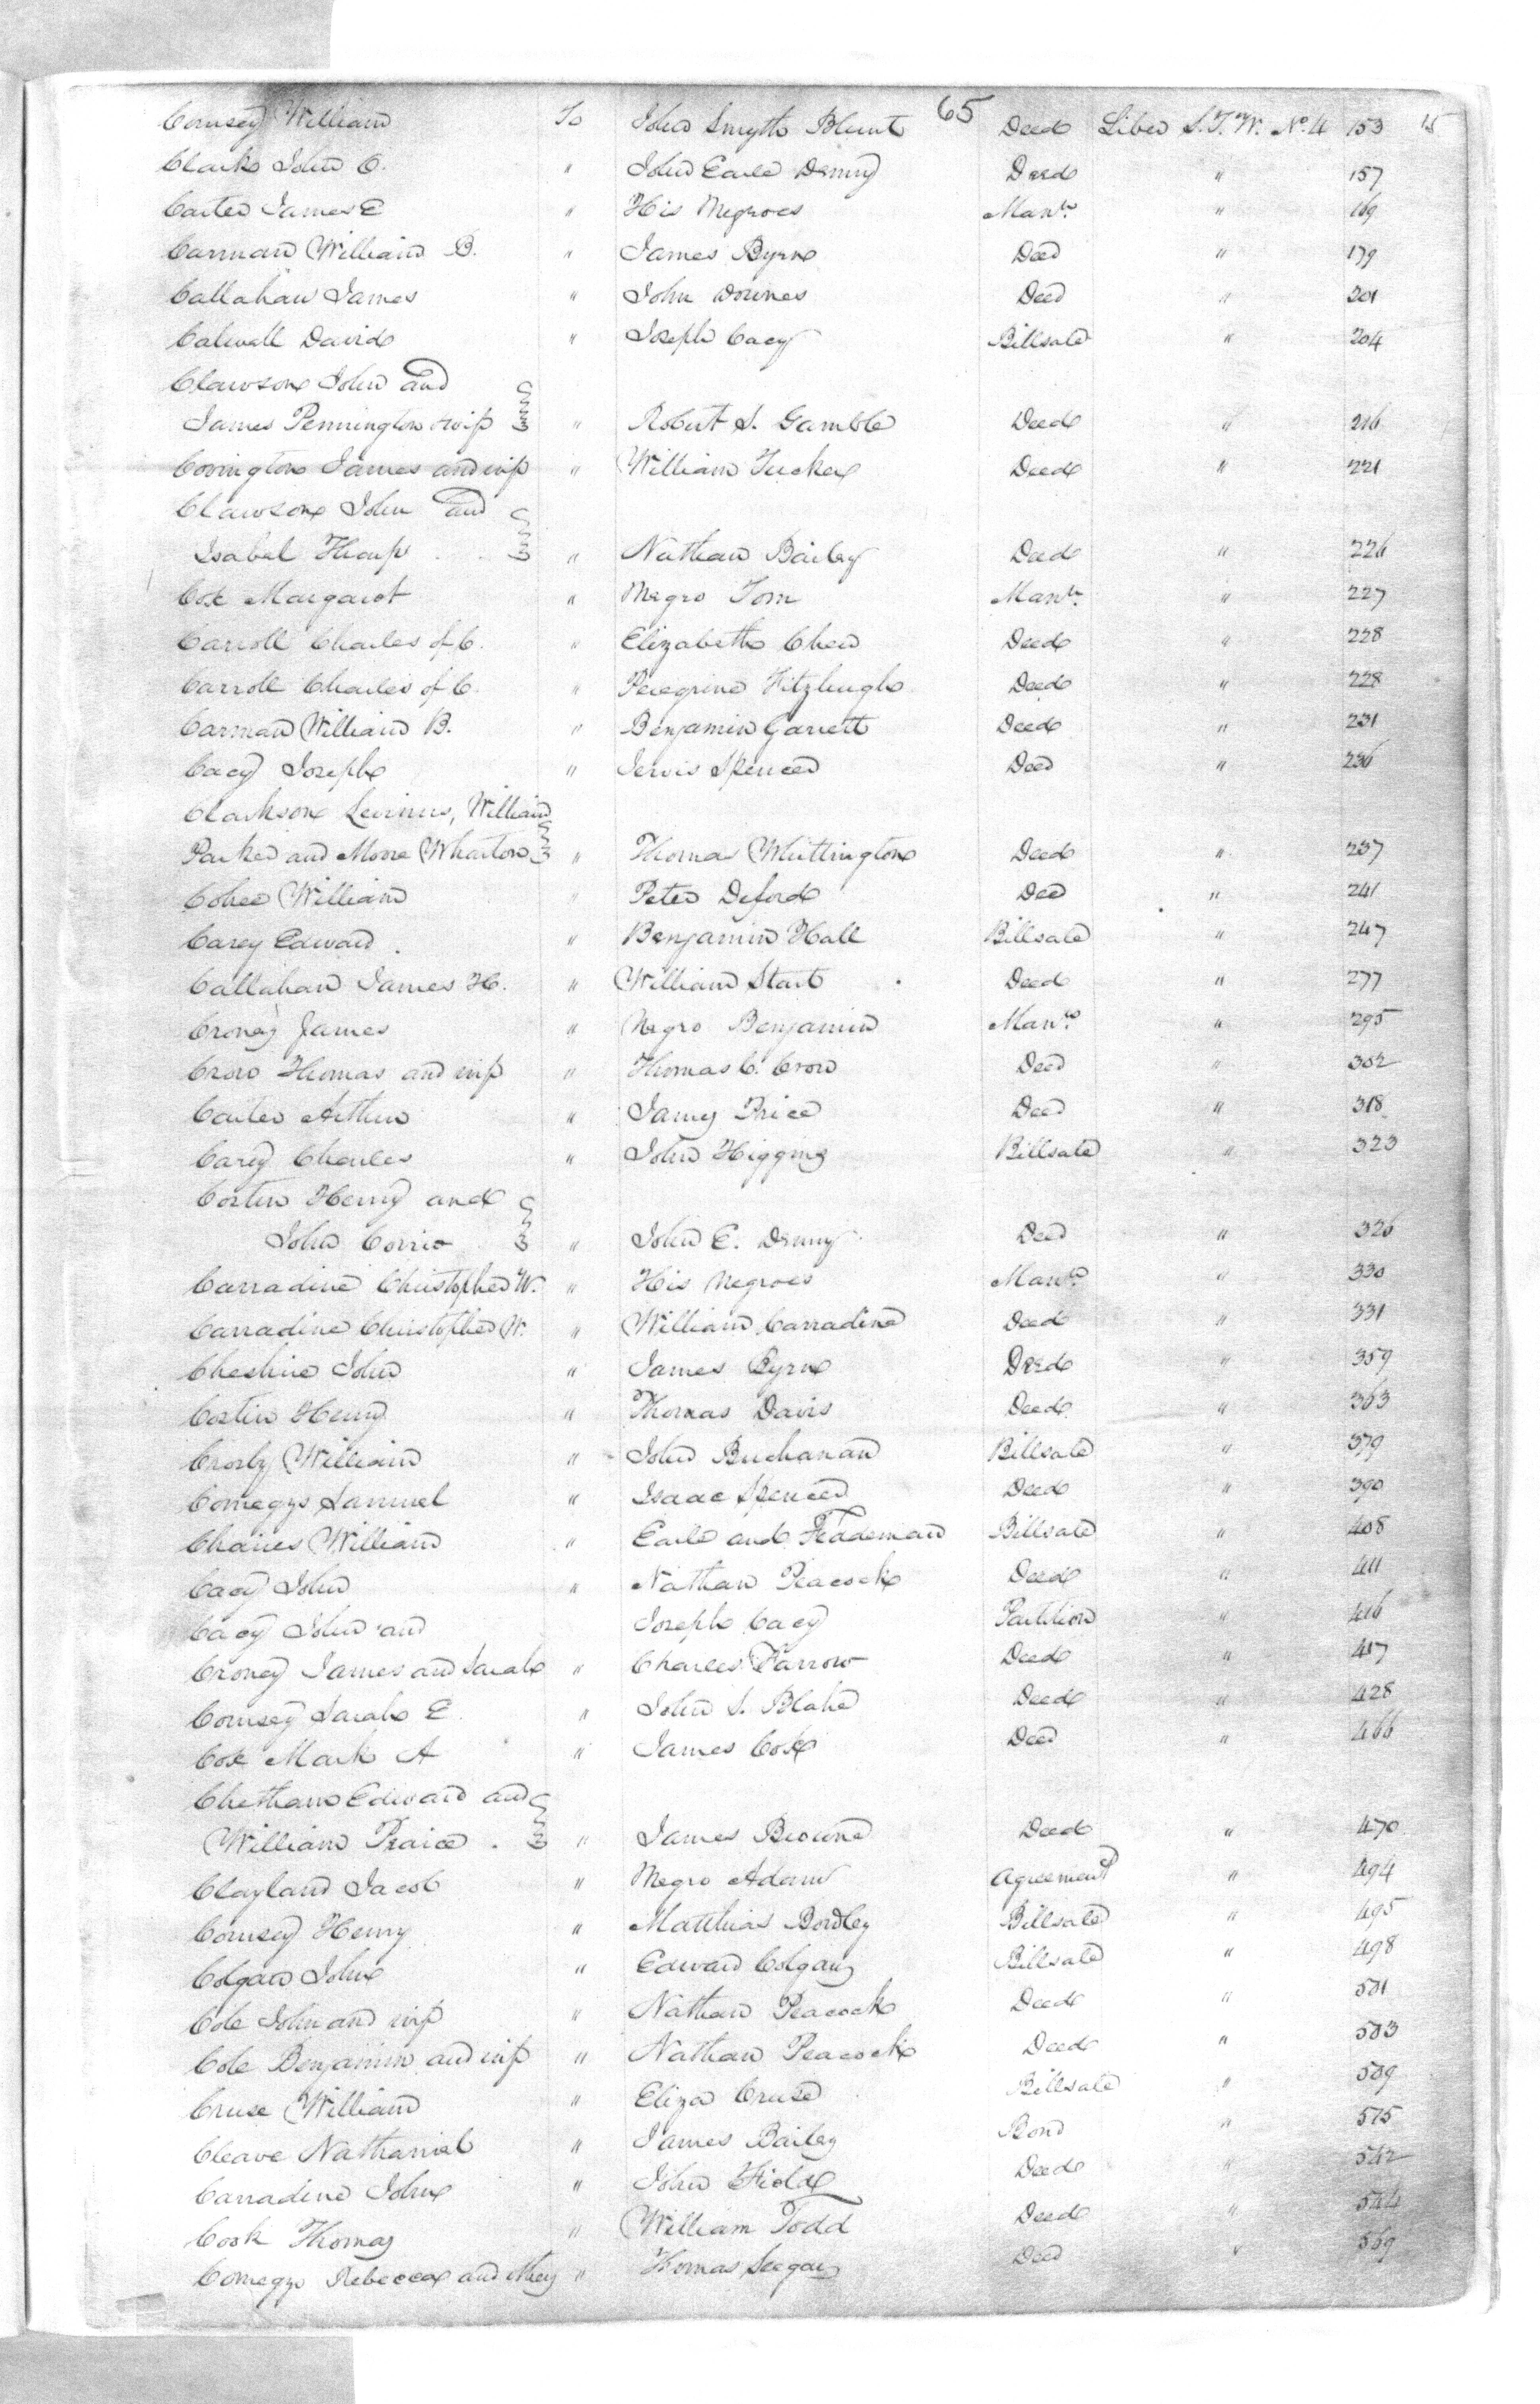 65
Comsey William To John Smyth Blunt Deed Liber S.T.W. No. 4 153 15
Clark John O. " John Earle Denny Deed " 157
Carter James E " His Negroes Man.n " 169
Carman William B. " James Byrne Deed " 179
Callahan James " John Downes Deed " 201
Calwell David " Joseph Cacy Billsale " 204
Clawson John and
James Pennington & wife " Robert S. Gamble Deed " 216
Covington James and wife " William Tucker Deed " 221
Clawson John and
Isabel Thorp " Nathan Bailey Deed " 226
Cox Margaret " Negro Tom Man.n " 227
Carroll Charles of C. " Elizabeth Chew Deed " 228
Carroll Charles of C. " Peregrine Fitzhugh Deed " 228
Carman William B. " Benjamin Garrett Deed " 231
Cacy Joseph " Jervis Spencer Deed " 236
Clarkson Levinus, William
Parker and Moore Wharton " Thomas Whittington Deed " 237
Cohee William " Peter Deford Deed " 241
Carey Edward " Benjamin Hall Billsale " 247
Callahan James H. " William Start Deed " 277
Croney James " Negro Benjamin Man.n " 295
Crow Thomas and wife " Thomas C. Crow Deed " 302
Carter Arthur " James Price Deed " 318
Carey Charles " John Higgins Billsale " 323
Costin Henry and
John Corrie " John E. Denny Deed " 326
Carradine Christopher W. " His Negroes Man.n " 330
Carradine Christopher W. " William Carradine Deed " 331
Cheshire John " James Byrne Deed " 359
Costin Henry " Thomas Davis Deed " 363
Crosby William " John Buchanan Billsale " 379
Comegys Samuel " Isaac Spencer Deed " 390
Chaires William " Earle and Tradesman Billsale " 408
Cacy John " Nathan Peacock Deed " 411
Cacy John and Joseph Cacy Partition " 416
Croney James and Sarah " Charles Farrow Deed " 417
Comsey Sarah E. " John S. Blake Deed " 428
Cox Mark A " James Cox Deed " 466
Chetham Edward and
William Praice " James Browne Deed " 470
Clayland Jacob " Negro Adam Agreement " 494
Comsey Henry " Matthias Bordley Billsale " 495
Colgan John " Edward Colgan Billsale " 498
Cole John and wife " Nathan Peacock Deed " 501
Cole Benjamin and wife " Nathan Peacock Deed " 503
Cruse William " Eliza Cruse Billsale " 509
Cleave Nathaniel " James Bailey Bond " 515
Carradine John " John Field Deed " 542
Cook Thomas " William Todd Deed " 544
Comegys Rebecca and " Thomas Seegar Deed " 569